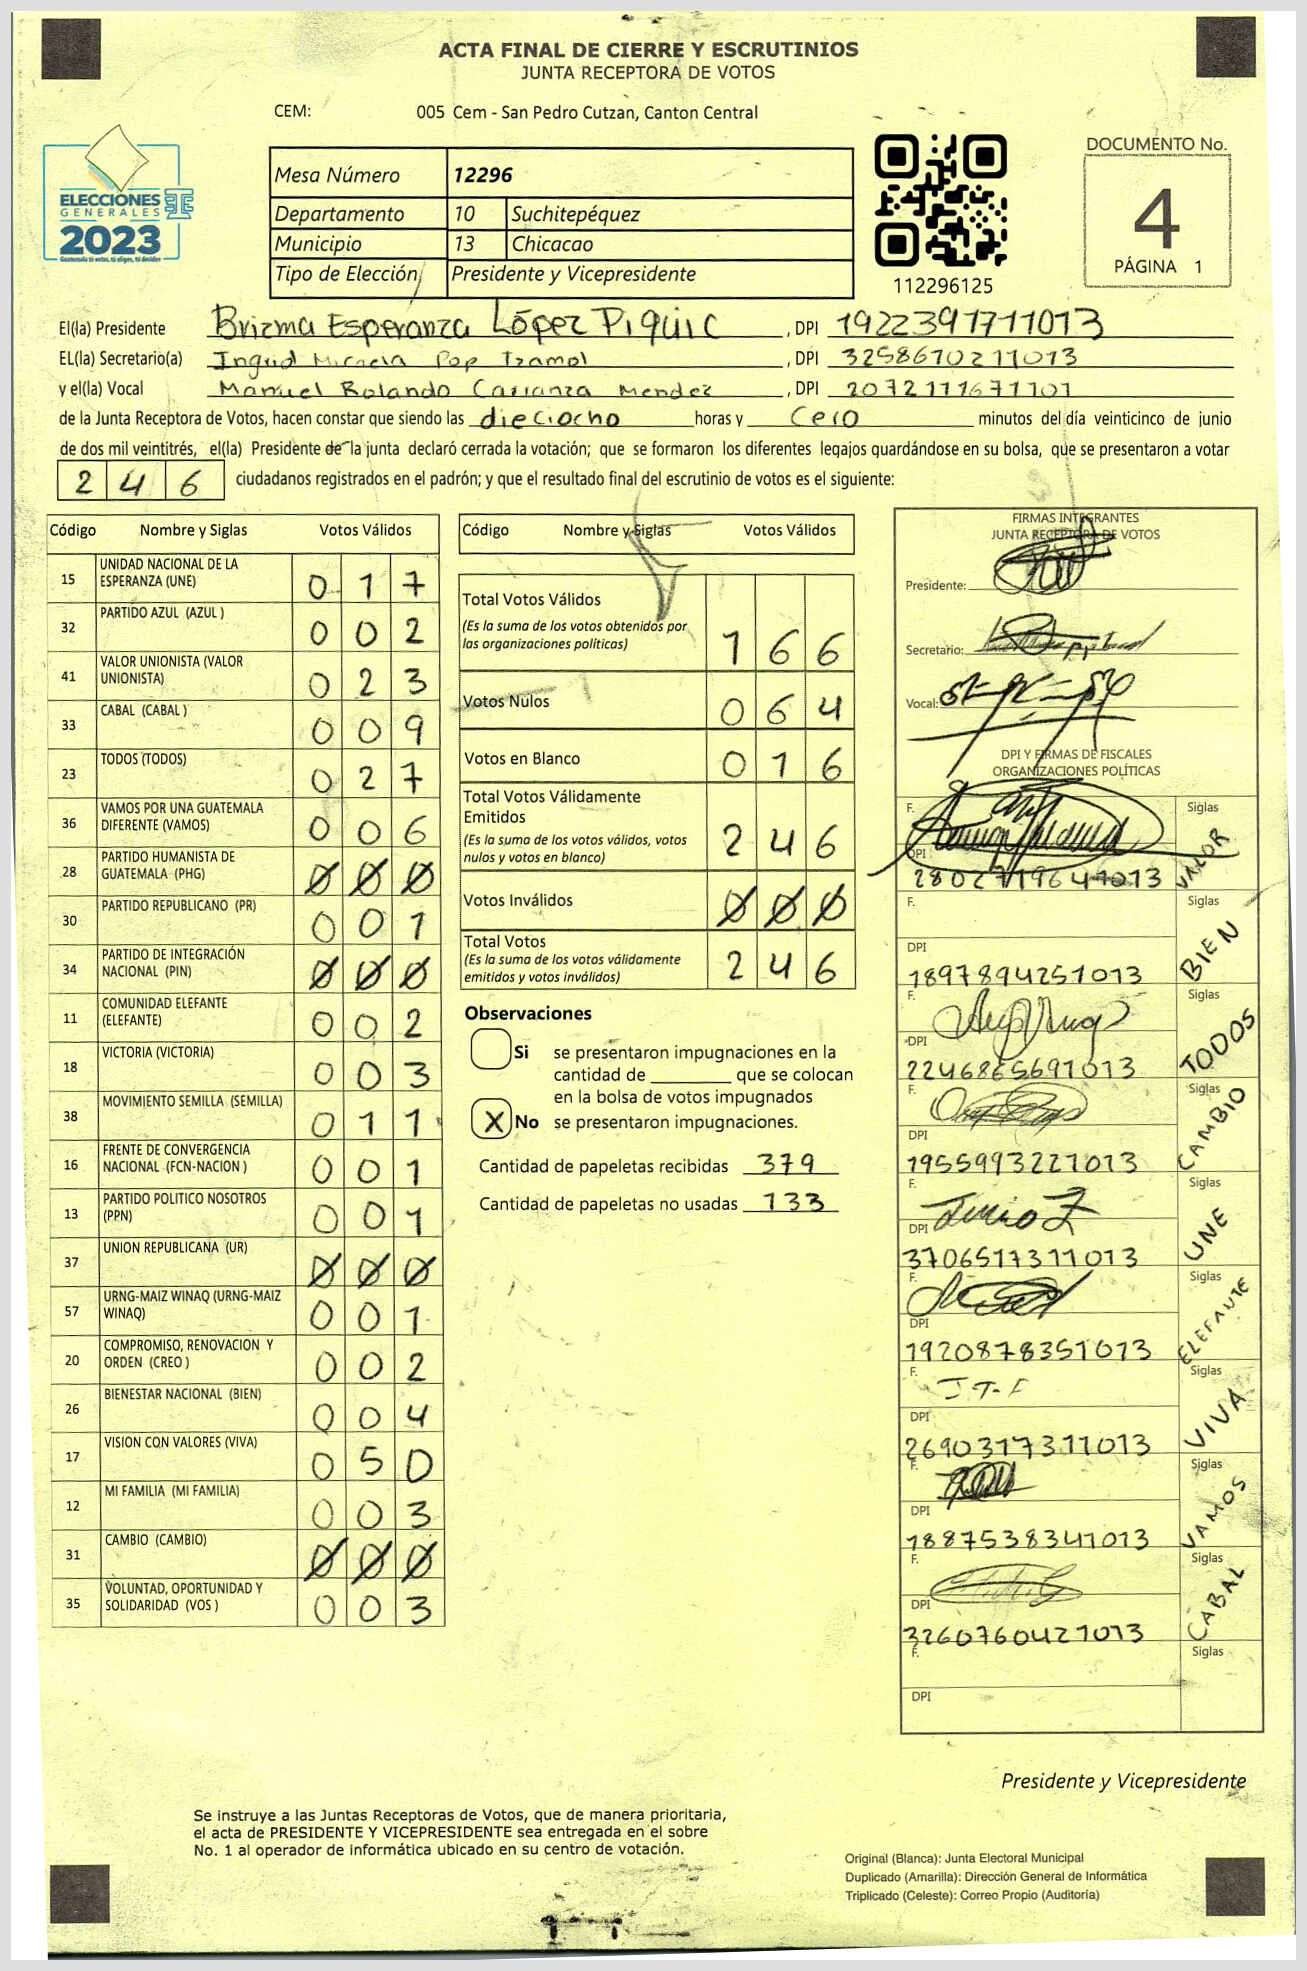 ACTA FINAL DE CIERRE Y ESCRUTINIOS
JUNTA RECEPTORA DE VOTOS
CEM: 005 Cem - San Pedro Cutzan, Canton Central
ELECCIONES
GENERALES
2023
Guatemala tú votas, tú eliges, tú decides
Mesa Número 12296
Departamento 10 Suchitepéquez
Municipio 13 Chicacao
Tipo de Elección Presidente y Vicepresidente
112296125
DOCUMENTO No.
4
PÁGINA 1
El(la) Presidente Brizma Esperanza López Piquic, DPI 1922391711013
EL(la) Secretario(a) Ingrid Micaela Pop Tzamol, DPI 3258610211013
y el(la) Vocal Manuel Rolando Carranza Mendez, DPI 2072111671101
de la Junta Receptora de Votos, hacen constar que siendo las dieciocho horas y Cero minutos del día veinticinco de junio
de dos mil veintitrés, el(la) Presidente de la junta declaró cerrada la votación; que se formaron los diferentes legajos guardándose en su bolsa, que se presentaron a votar
246 ciudadanos registrados en el padrón; y que el resultado final del escrutinio de votos es el siguiente:
Código Nombre y Siglas Votos Válidos
15 UNIDAD NACIONAL DE LA
ESPERANZA (UNE) 017
32 PARTIDO AZUL (AZUL ) 002
41 VALOR UNIONISTA (VALOR
UNIONISTA) 023
33 CABAL (CABAL ) 009
23 TODOS (TODOS) 027
36 VAMOS POR UNA GUATEMALA
DIFERENTE (VAMOS) 006
28 PARTIDO HUMANISTA DE
GUATEMALA (PHG) 000
30 PARTIDO REPUBLICANO (PR) 001
34 PARTIDO DE INTEGRACIÓN
NACIONAL (PIN) 000
11 COMUNIDAD ELEFANTE
(ELEFANTE) 002
18 VICTORIA (VICTORIA) 003
38 MOVIMIENTO SEMILLA (SEMILLA) 011
16 FRENTE DE CONVERGENCIA
NACIONAL (FCN-NACION ) 001
13 PARTIDO POLITICO NOSOTROS
(PPN) 001
37 UNION REPUBLICANA (UR) 000
57 URNG-MAIZ WINAQ (URNG-MAIZ
WINAQ) 001
20 COMPROMISO, RENOVACION Y
ORDEN (CREO ) 002
26 BIENESTAR NACIONAL (BIEN) 004
17 VISION CON VALORES (VIVA) 050
12 MI FAMILIA (MI FAMILIA) 003
31 CAMBIO (CAMBIO) 000
35 VOLUNTAD, OPORTUNIDAD Y
SOLIDARIDAD (VOS ) 003
Código Nombre y Siglas Votos Válidos
Total Votos Válidos
(Es la suma de los votos obtenidos por
las organizaciones políticas) 166
Votos Nulos 064
Votos en Blanco 016
Total Votos Válidamente
Emitidos
(Es la suma de los votos válidos, votos
nulos y votos en blanco) 246
Votos Inválidos 000
Total Votos
(Es la suma de los votos válidamente
emitidos y votos inválidos) 246
Observaciones
Si se presentaron impugnaciones en la
cantidad de ________ que se colocan
en la bolsa de votos impugnados
X No se presentaron impugnaciones.
Cantidad de papeletas recibidas 379
Cantidad de papeletas no usadas 133
FIRMAS INTEGRANTES
JUNTA RECEPTORA DE VOTOS
Presidente:
Secretario:
Vocal:
DPI Y FIRMAS DE FISCALES
ORGANIZACIONES POLÍTICAS
F. Siglas
DPI VALOR
F. Siglas
DPI BIEN
1897894251013
F. Siglas
DPI TODOS
2246865691013
F. Siglas
DPI CAMBIO
1955993221013
F. Junio Z Siglas
DPI UNE
3706517311013
F. Siglas
DPI ELEFANTE
1920878351013
F. Siglas
DPI VIVA
2690317311013
F. Siglas
DPI VAMOS
1887538341013
F. Siglas
DPI CABAL
3260760421013
F. Siglas
DPI
Presidente y Vicepresidente
Se instruye a las Juntas Receptoras de Votos, que de manera prioritaria,
el acta de PRESIDENTE Y VICEPRESIDENTE sea entregada en el sobre
No. 1 al operador de informática ubicado en su centro de votación.
Original (Blanca): Junta Electoral Municipal
Duplicado (Amarilla): Dirección General de Informática
Triplicado (Celeste): Correo Propio (Auditoría)